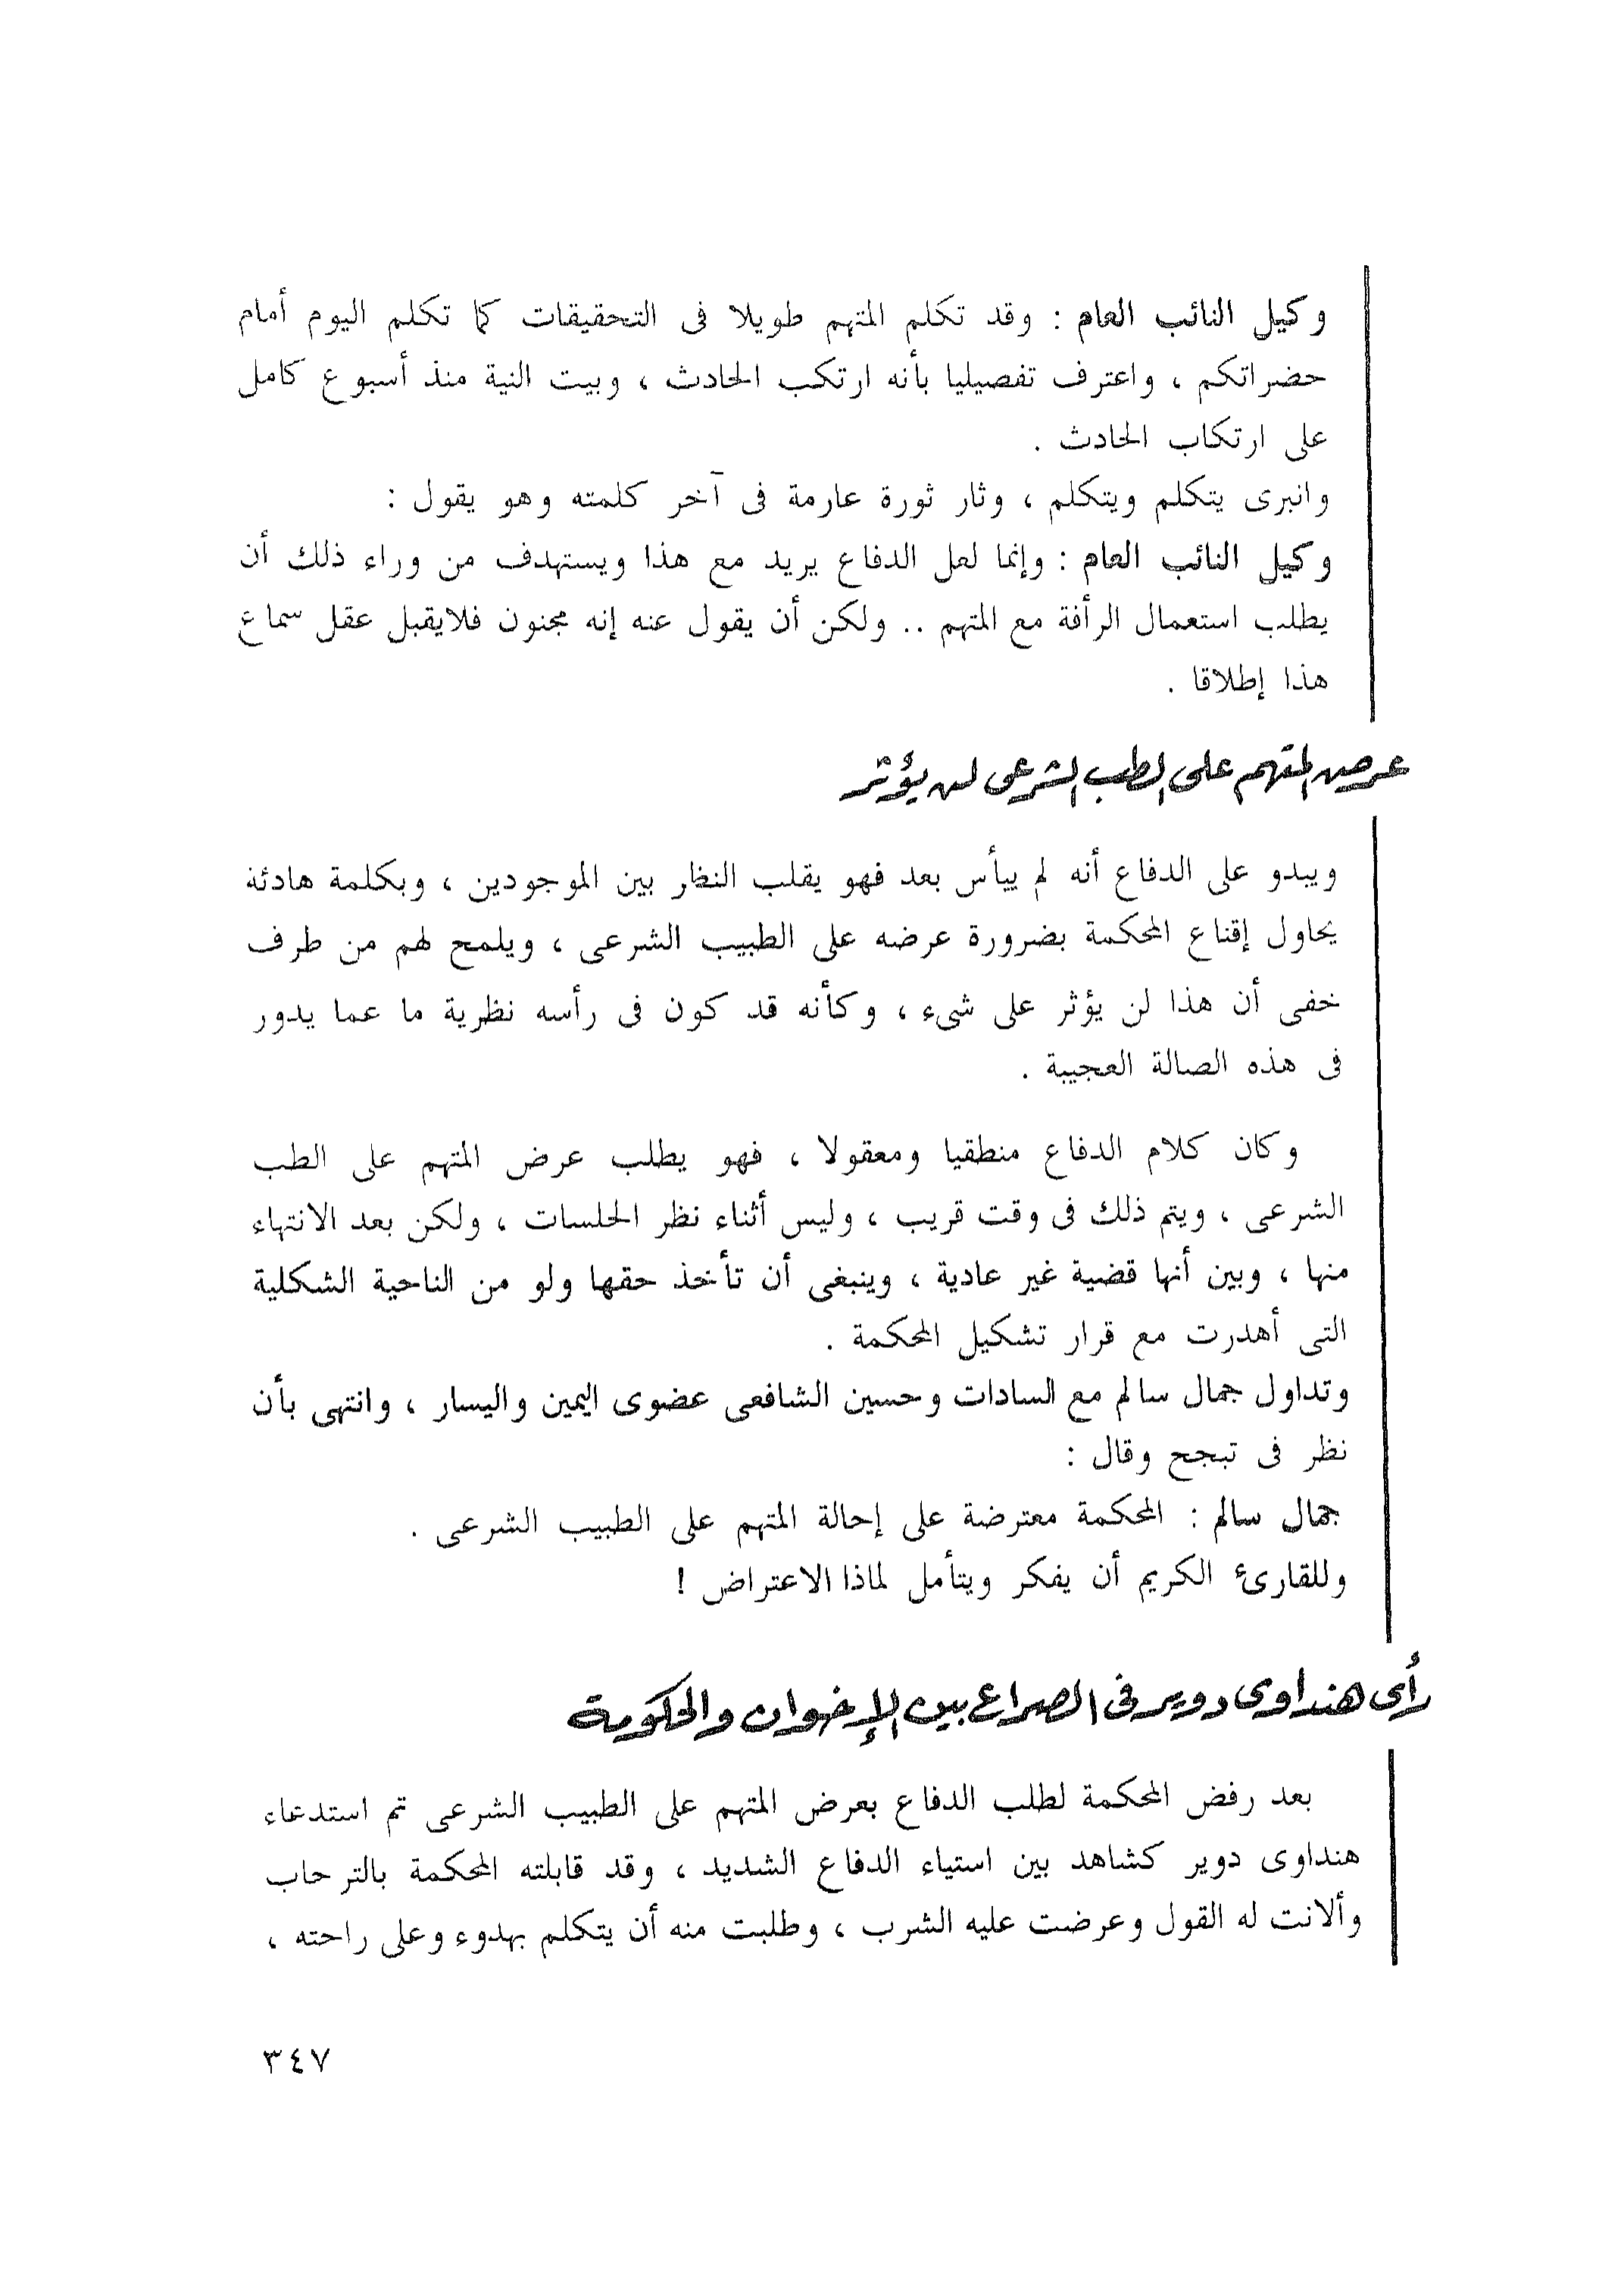 وكيل النائب العام : وقد تكلم المتهم طويلا فى التحقيقات كما تكلم اليوم أمام
حضراتكم ، واعترف تفصيليا بأنه ارتكب الحادث ، وبيت النية منذ أسبوع كامل
على ارتكاب الحادث .
وانبرى يتكلم ويتكلم ، وثار ثورة عارمة فى آخر كلمته وهو يقول :
وكيل النائب العام : وإنما لعل الدفاع يريد مع هذا ويستهدف من وراء ذلك أن
يطلب استعمال الرأفة مع المتهم .. ولكن أن يقول عنه إنه مجنون فلايقبل عقل سماع
هذا إطلاقا .
عرض المتهم على الطب الشرعى لن يؤثر
ويبدو على الدفاع أنه لم ييأس بعد فهو يقلب النظار بين الموجودين ، وبكلمة هادئة
يحاول إقناع المحكمة بضرورة عرضه على الطبيب الشرعى ، ويلمح لهم من طرف
خفى أن هذا لن يؤثر على شىء ، وكأنه قد كون فى رأسه نظرية ما عما يدور
فى هذه الصالة العجيبة .
وكان كلام الدفاع منطقيا ومعقولا ، فهو يطلب عرض المتهم على الطب
الشرعى ، ويتم ذلك فى وقت قريب ، وليس أثناء نظر الجلسات ، ولكن بعد الانتهاء
منها ، وبين أنها قضية غير عادية ، وينبغى أن تأخذ حقها ولو من الناحية الشكلية
التى أهدرت مع قرار تشكيل المحكمة .
وتداول جمال سالم مع السادات وحسين الشافعى عضوى اليمين واليسار ، وانتهى بأن
نظر فى تبجح وقال :
جمال سالم : المحكمة معترضة على إحالة المتهم على الطبيب الشرعى .
وللقارئ الكريم أن يفكر ويتأمل لماذا الاعتراض !
رأى هنداوى دوير فى الصراع بين الإخوان والحكومة
بعد رفض المحكمة لطلب الدفاع بعرض المتهم على الطبيب الشرعى تم استدعاء
هنداوى دوير كشاهد بين استياء الدفاع الشديد ، وقد قابلته المحكمة بالترحاب
وألانت له القول وعرضت عليه الشرب ، وطلبت منه أن يتكلم بهدوء وعلى راحته ،
٣٤٧